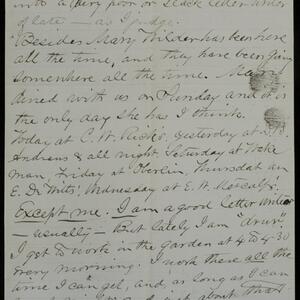 with a very poor or slack letter writer
of late — as I judge.
Besides Mary Wilder has been here
all the time, and they have been going
somewhere all the time. Mary
dined with us on Sunday and it is
the only day she has I think.
Today at C. W. yesterday at
Andrews & all night Saturday at
man, Friday at Oberlin, Thursday at
E. D. Wednesday at E. W. Metcalfs.
Except me. I am a good letter writer
— usually — But lately I am
I get to work in the garden at 4 to 4-30
every morning. I work there all the
time I can get, and, as long as I can
about that